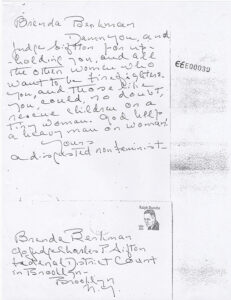 Brenda Berkman
Damn you, and
Judge Sifton for up-
holding you, and all
the other women who
want to be firefighters.
You, and those like
you, could, no doubt,
rescue children or a
tiny woman. God help
a heavy man or woman.
Yours
a disgusted non feminist
EEE00039
Brenda Berkman
c/o Judge Charles P. Sifton
Federal District Court
in Brooklyn
Brooklyn
N.Y.